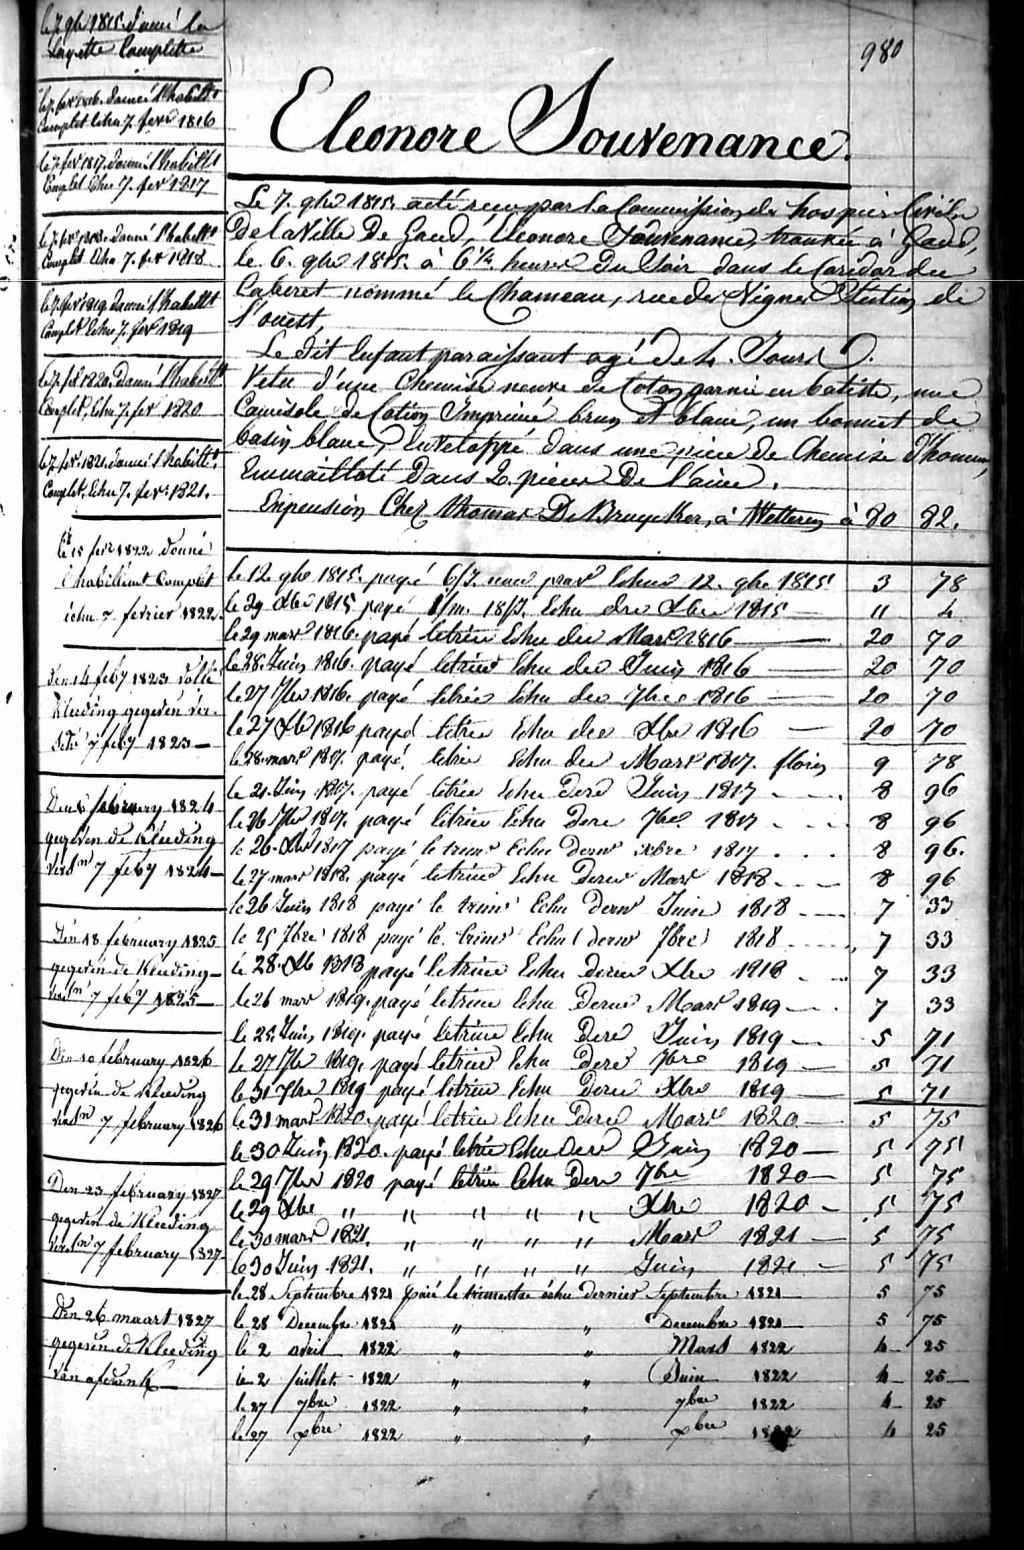 le 7. 9bre 1815. donné la
Layette Complette
le 7. fevr 1816. donné l'habillt
Complet Echu 7. fevr 1816
le 7. fevr 1817. donné l'habillt
Complet Echu 7. fevr 1817
le 7. fevr 1818. donné l'habillt
Complet Echu 7. fevr 1818
le 7. fevr 1819 donné l'habillt
Complet Echu 7. fevr 1819
le 7. fevr 1820. Donné l'habillt
Complet, Echu 7. fevr 1820
le 7. fevr. 1821. donné l'habillt
Complet, Echu 7. fevr. 1821.
le 15 fevr 1822 donné
l'habillement Complet
échu 7 fevrier 1822.
Den 14 feby 1823 volle
Kleeding gegeven ver-
7 feby 1823
Den february 1824
gegeven de Kleeding
7 feby 1824
Den 18 february 1825
gegeven de Kleeding
7 feby 1825
Den 10 february 1826
gegeven de Kleeding
7 february 1826
Den 23 february 1827
gegeven de Kleeding
7 february 1827
Den 26 maart 1827
gegeven de Kleeding
980
Eleonore Souvenance.
Le 7. 9bre 1815. acté reçu par la Commission des hospices Civils
De la Ville De Gand, Eleonore Souvenance, trouvée à Gand,
le 6. 9bre 1815. à 6 1/2 heures Du Soir dans le Coridor du
Caberet nommé le Chameau, rue des Vignes Section de
l'ouest,
Le dit Enfant paraissant agé De 4. Jours.
Vetu d'une Chemise neuve de Coton garnie en batiste, une
Camisole de Cotton Imprimé brun et blanc, un bonnet de
basin blanc, Enveloppé dans une piece de Chemise d'homme,
Emmailloté Dans 2. pieces De l'aine.
En pension Chez Thomas De Bruycker, à Wetteren à 80 82.
le 12 9bre 1815. payé Echus 12. 9bre 1815 3 78
le 29 Xbre 1815 payé 1/m. 18/J. Echu dre Xbre 1815 11 4
le 29 mars 1816. payé le trim Echu der Mars 1816 20 70
le 28. Juin 1816. payé le trim Echu der Juin 1816 20 70
le 27 7bre 1816. payé le trim Echu der 7bre 1816 20 70
le 27 Xbre 1816 payé le trim Echu der Xbre 1816 20 70
le 28. mars 1817. payé. le trim Echu der Mars 1817. florins 9 78
le 21. Juin 1817. payé le trim Echu Derr Juin 1817 8 96
le 26 7bre 1817. payé le trim Echu Derr 7bre 1817 8 96
le 26. Xbre 1817 payé le trim Echu dernr xbre 1817 8 96.
le 27 mars 1818. payé le trim Echu Dernr Mars 1818 8 96
le 26 Juin 1818 payé le trim Echu dernr Juin 1818 7 33
le 25 7bre 1818 payé le trim Echu dernr 7bre 1818 7 33
le 28. Xb 1818 payé le trim Echu dernr Xbre 1818 7 33
le 26 mars 1819. payé le trim Echu Dernr Mars 1819 7 33
le 25. Juin 1819. payé le trim Echu Derr Juin 1819 5 71
le 27 7bre 1819. payé le trim Echu Derr 7bre 1819 5 71
le 31 Xbre 1819 payé le trim Echu Dernr Xbre 1819 5 71
le 31 mars 1820. payé le trim Echu Derr Mars 1820 5 75
le 30 Juin 1820. payé le trim Echu Derr Juin 1820 5 75
le 29 7bre 1820 payé le trim Echu Derr 7bre 1820 5 75
le 29 Xbre " " " " " Xbre 1820 5 75
le 30 mars 1821. " " " " Mars 1821 5 75
le 30 Juin 1821. " " " " Juin 1821 5 75
le 28 Septembre 1821 païé le trimestre échu dernier Septembre 1821 5 75
le 28 Decembre 1821 " " Decembre 1821 5 75
le 2 avril 1822 " " Mars 1822 4 25
le 2 juillet 1822 " " Juin 1822 4 25
le 27 7bre 1822 " " 7bre 1822 4 25
le 27 xbre 1822 " " xbre 1822 4 25